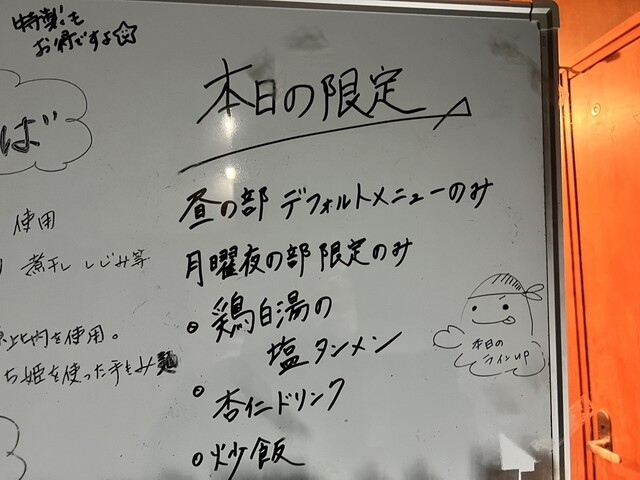 特製も
お得ですよ
ば
使用
煮干し しじみ等
比内を使用。
ち姫を使った手もみ麺
本日の限定
昼の部 デフォルトメニューのみ
月曜夜の部 限定のみ
鶏白湯の
塩タンメン
杏仁ドリンク
炒飯
本日の
ラインup